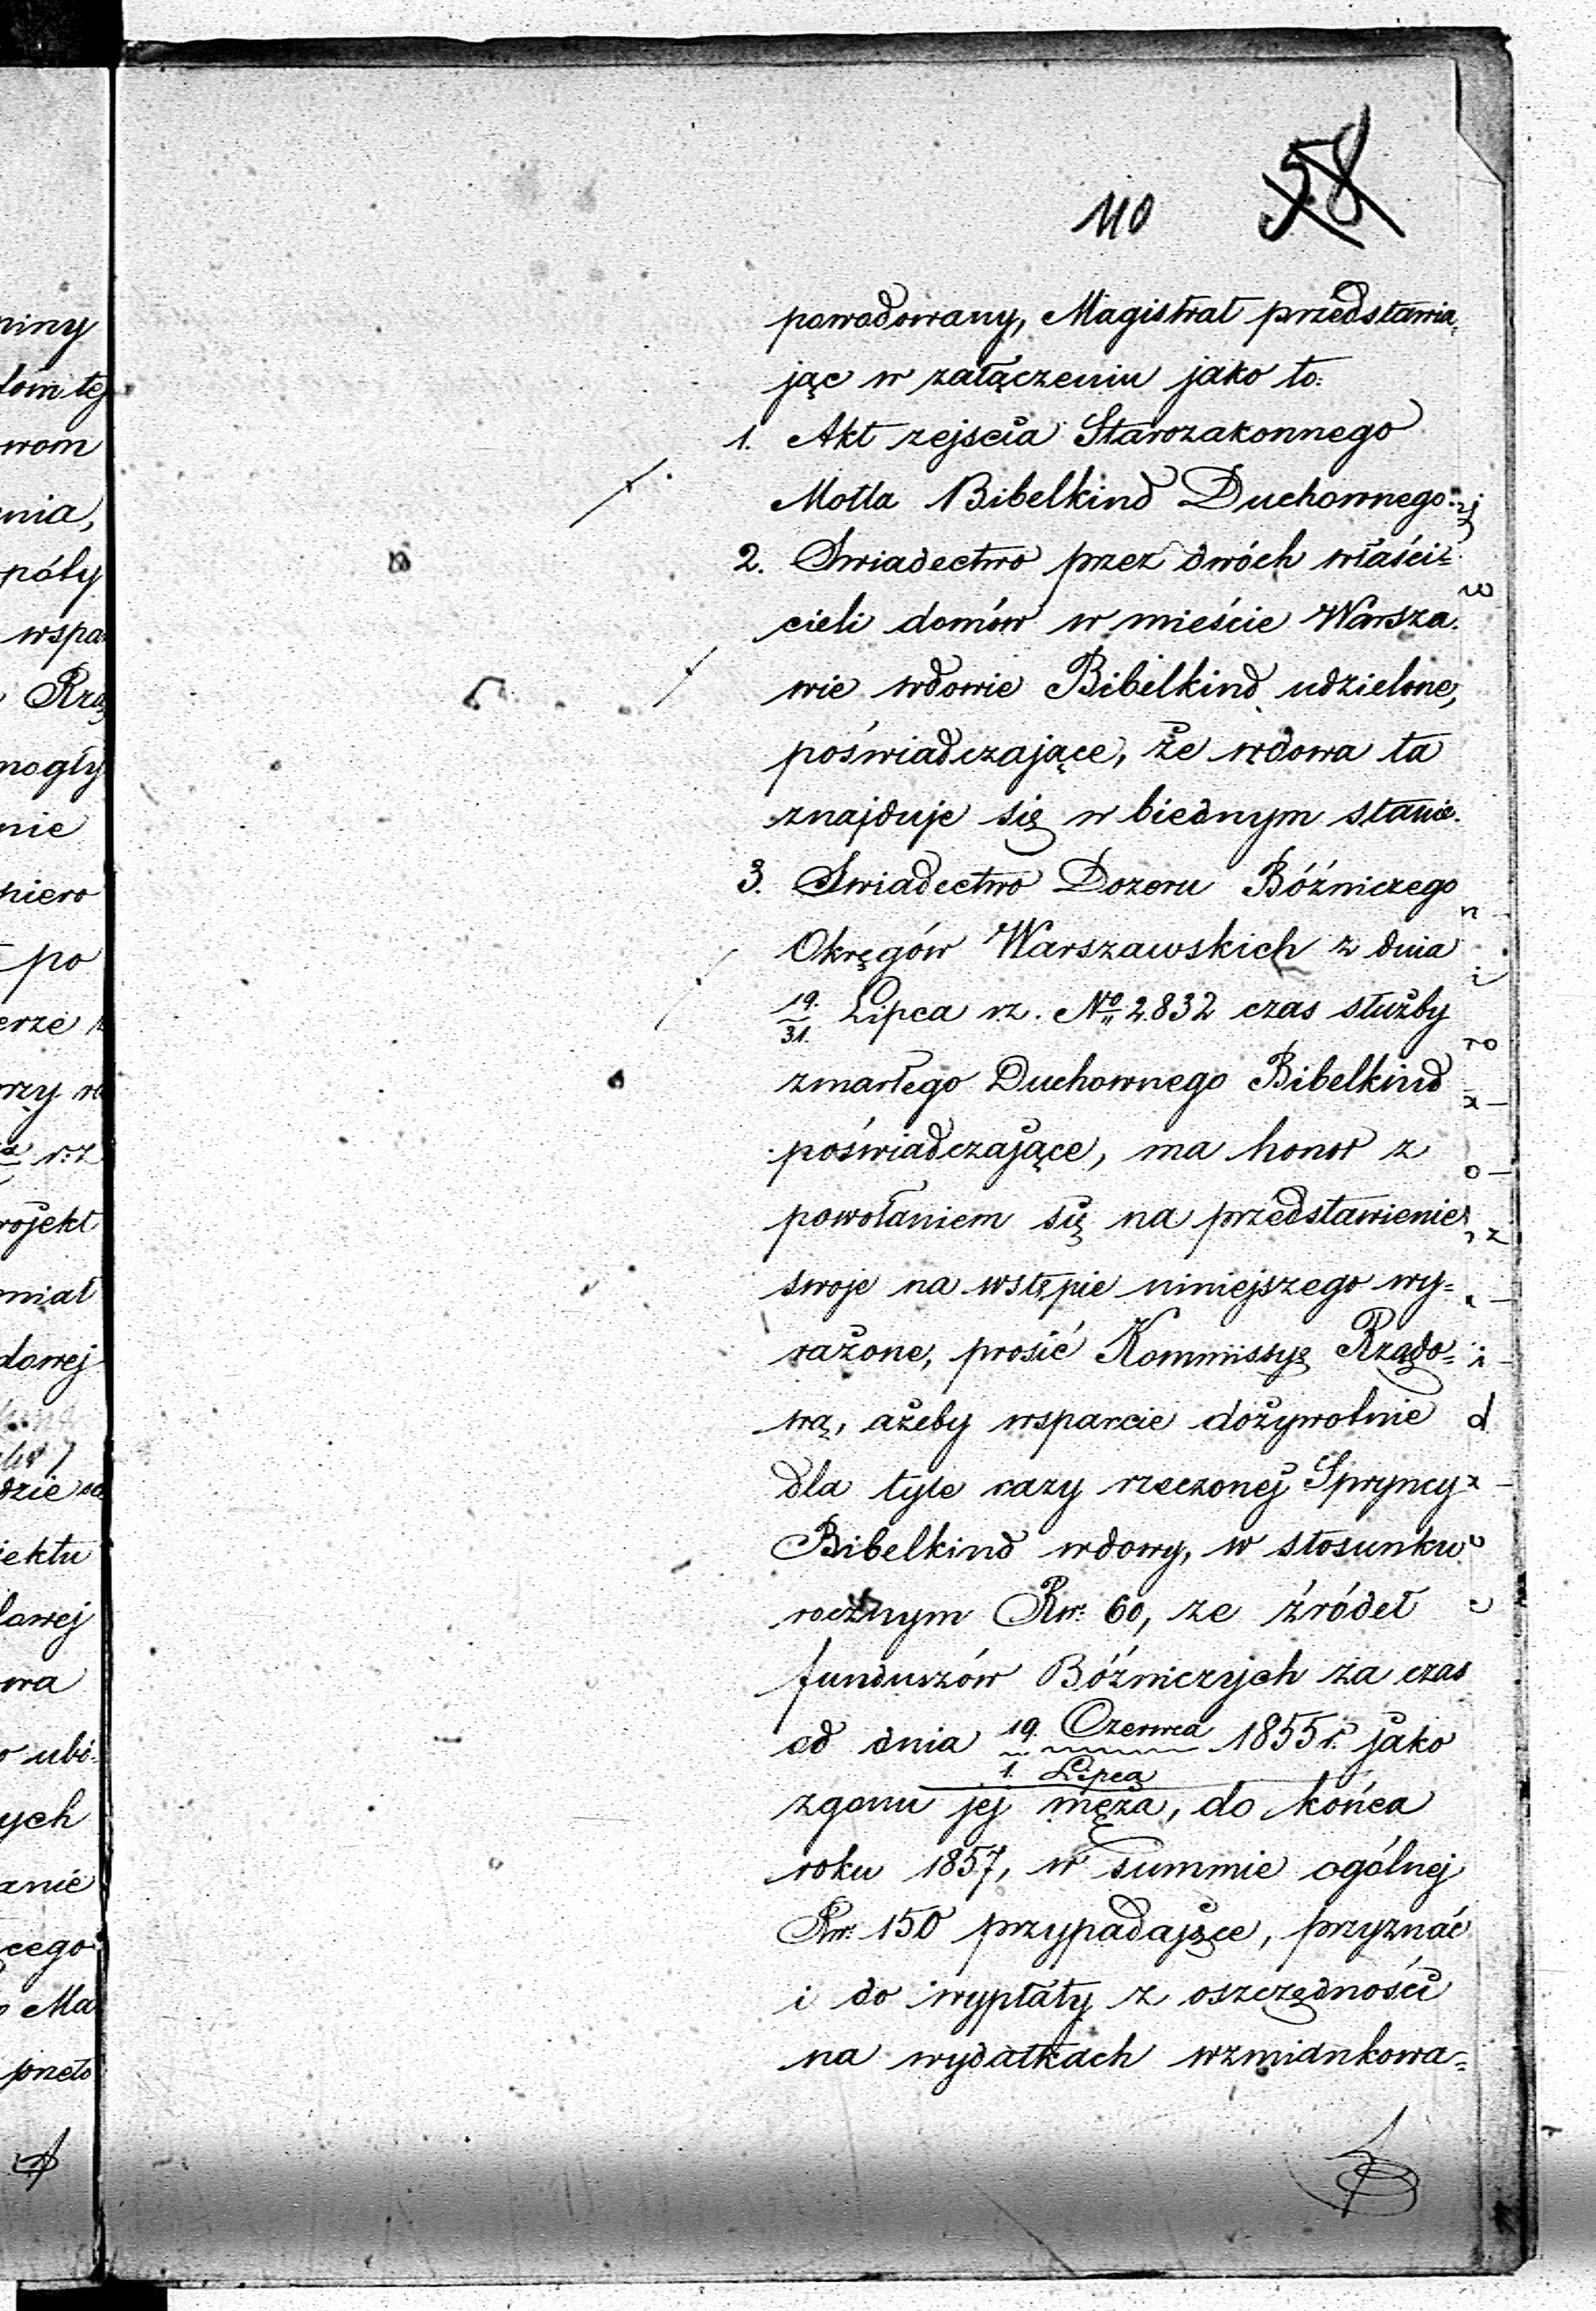 110 58
powodowany, Magistrat przedstawia,
jąc w załączeniu jako to:
1. Akt zejścia Starozakonnego
Motla Bibelkind Duchownego.
2. Swiadectwo przez dwóch właści=
cieli domów w mieście Warsza.
wie wdowie Bibelkind udzielone,
poświadczające, że wdowa ta
znajduje się w biednym stanie.
3. Swiadectwo Dozoru Bóźniczego
Okręgów Warszawskich z dnia
19./31. Lipca r.z. No 2832 czas służby
zmarłego Duchownego Bibelkind
poświadczające, ma honor z
powołaniem się na przedstawienie
swoje na wstępie niniejszego wy=
rażone, prosić Kommissyę Rządo=
wą, ażeby wsparcie dożywotnie
dla tyle razy rzeczonej Spryncy
Bibelkind wdowy, w stosunku
rocznym Rsr: 60, ze źródeł
funduszów Bóźniczych za czas
od dnia 19. Czerwca / 1. Lipca 1855 r. jako
zgonu jej męża, do końca
roku 1857, w summie ogólnej
Rsr: 150 przypadające, przyznać
i do wypłaty z oszczędności
na wydatkach wzmiankowa=